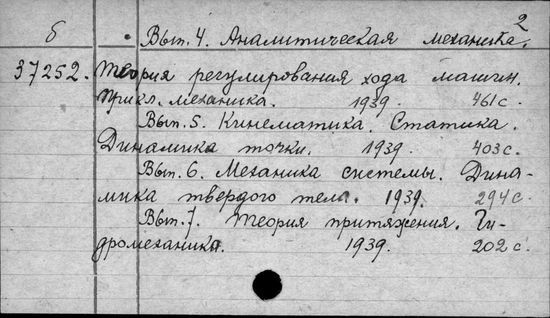 2
б Вып. 4. Аналитическая механика.
37252. Теория регулирования хода машин.
Прикл. механика. 1939. 461 с.
Вып. 5. Кинематика. Статика.
Динамика точки. 1939. 403 с.
Вып. 6. Механика системы. Дина-
мика твердого тела. 1939. 294 с.
Вып. 7. Теория притяжения. Ги-
дромеханика. 1939. 202 с.